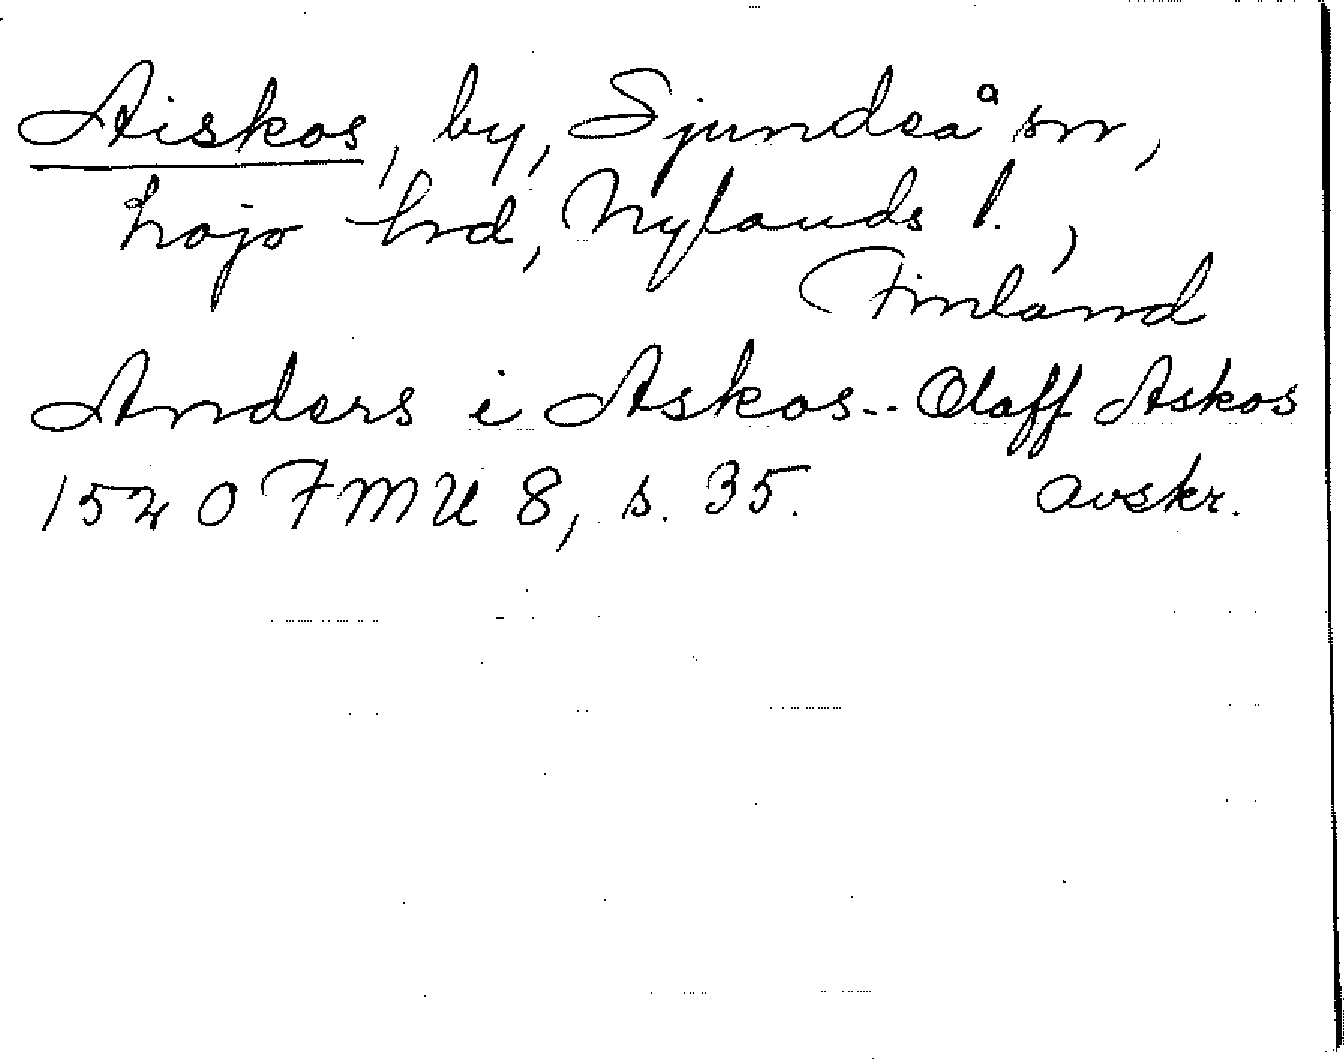 Aiskos, by, Sjundeå sn,
Lojo hrd, Nylands l.,
Finland
Anders i Askos-- Olaff Askos
1540 FMU 8, s. 35. avskr.